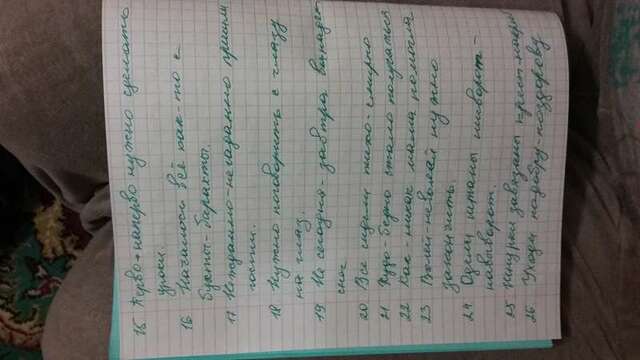 15 Перво-наперво нужно сделать
уроки.
16 Началось всё как-то с
бухты-барахты.
17 Нежданно-негаданно пришли
гости.
18 Нужно поговорить с глазу
на глаз.
19 Не сегодня-завтра выпадет
снег
20 Все сидели тихо-смирно
21 Худо-бедно стало получаться
22 Как-никак мама помогла
23 Волей-неволей нужно
закончить.
24 Одели штаны шиворот-
навыворот.
25 Шнурки завязаны крест-накрест
26. Уходи подобру-поздорову